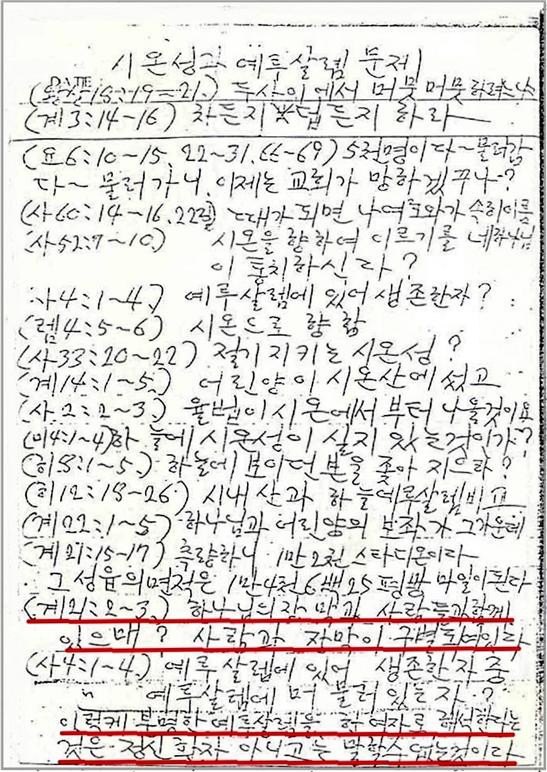 시온성과 예루살렘 문제
DATE
(왕상18:19=21.) 두사이에서 머뭇머뭇 하려느냐
(계3:14~16) 차든지 덥든지 하라
(요6:10~15, 22~31, 66~69) 5천명이 다~물러감
다~ 물러가니, 이제는 교회가 망하겠꾸나?
(사60:14~16, 22절) 때가 되면 나여호와가 속히이룸
사52:7~10.) 시온을 향하여 이르기를 네하나님
이 통치하신다?
사4:1~4.) 예루살렘에 있어 생존한자?
(렘4:5~6) 시온으로 향함
(사33:20~22) 절기 지키는 시온성?
(계14:1~5.) 어린양이 시온산에 섰고
(사2:2~3.) 율법이 시온에서 부터 나올것이요
(미4:1~4) 하늘에 시온성이 실지 있는것이가?
(히8:1~5.) 하늘에 보이던 본을 좇아 지으라?
(히12:18~26.) 시내산과 하늘예루살렘비교
(계22:1~5) 하나님과 어린양의 보좌가 그가운데
(계21:15~17) 측량하니 1만2천 스타디온이라
그 성읍의면적은 1만4천6백25평방 마일이된다
(계21:2~3.) 하나님의장막과 사람들과함께
있으매? 사람과 장막이 구별되여있다
(사4:1~4.) 예루살렘에 있어 생존한자 중
예루살렘에 머물러 있는자?
이렇케 분명한 예루살렘을 한 여자로 해석한다는
것은 정신환자 아니고는 말할수 없는것이라